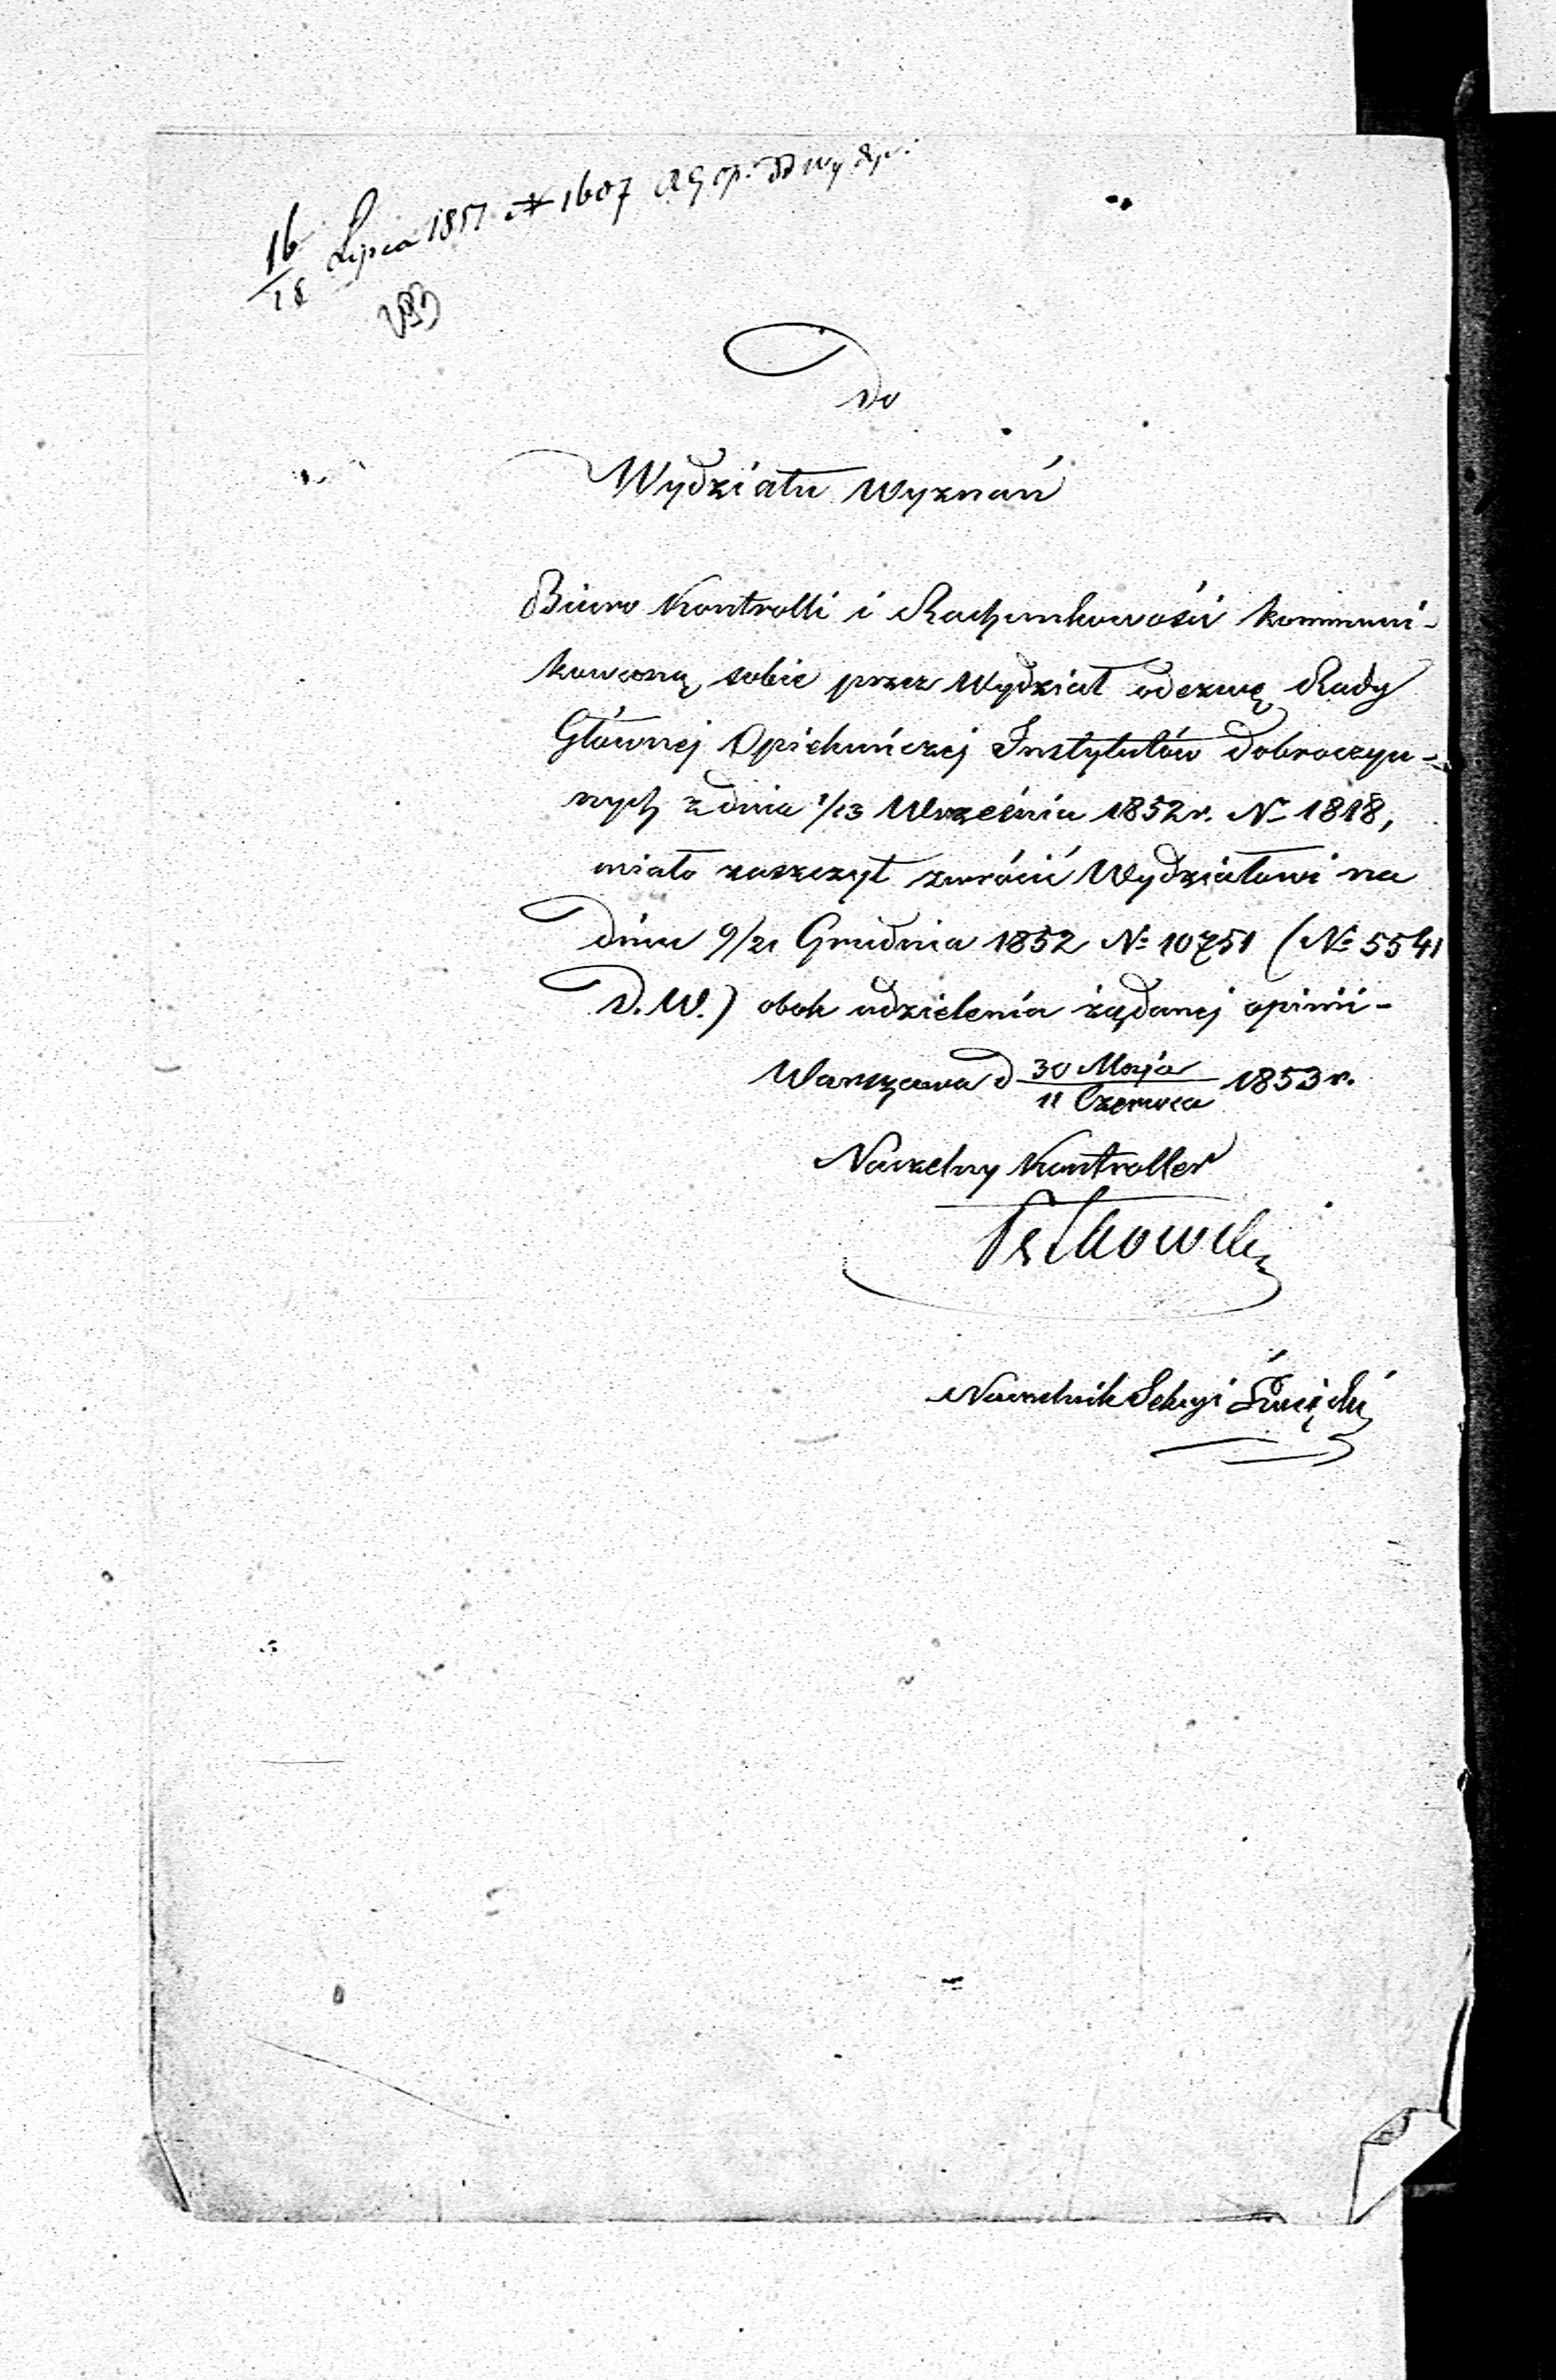 16/28 Lipca 1851 № 1607
Do
Wydziału Wyznań
Biuro Kontrolli i Rachunkowości kommuni-
kowaną sobie przez Wydział odezwę Rady
Głównej Opiekuńczej Instytutów dobroczyn-
nych z dnia 1/13 Września 1852 r. № 1818,
miało zaszczyt zwrócić Wydziałowi na
dniu 9/21 Grudnia 1852 № 10751 (№ 5541
D.W.) obok udzielenia żądanej opinii-
Warszawa d 30 Maja/11 Czerwca 1853 r.
Naczelny Kontroller
Naczelnik Sekcyi Święcki